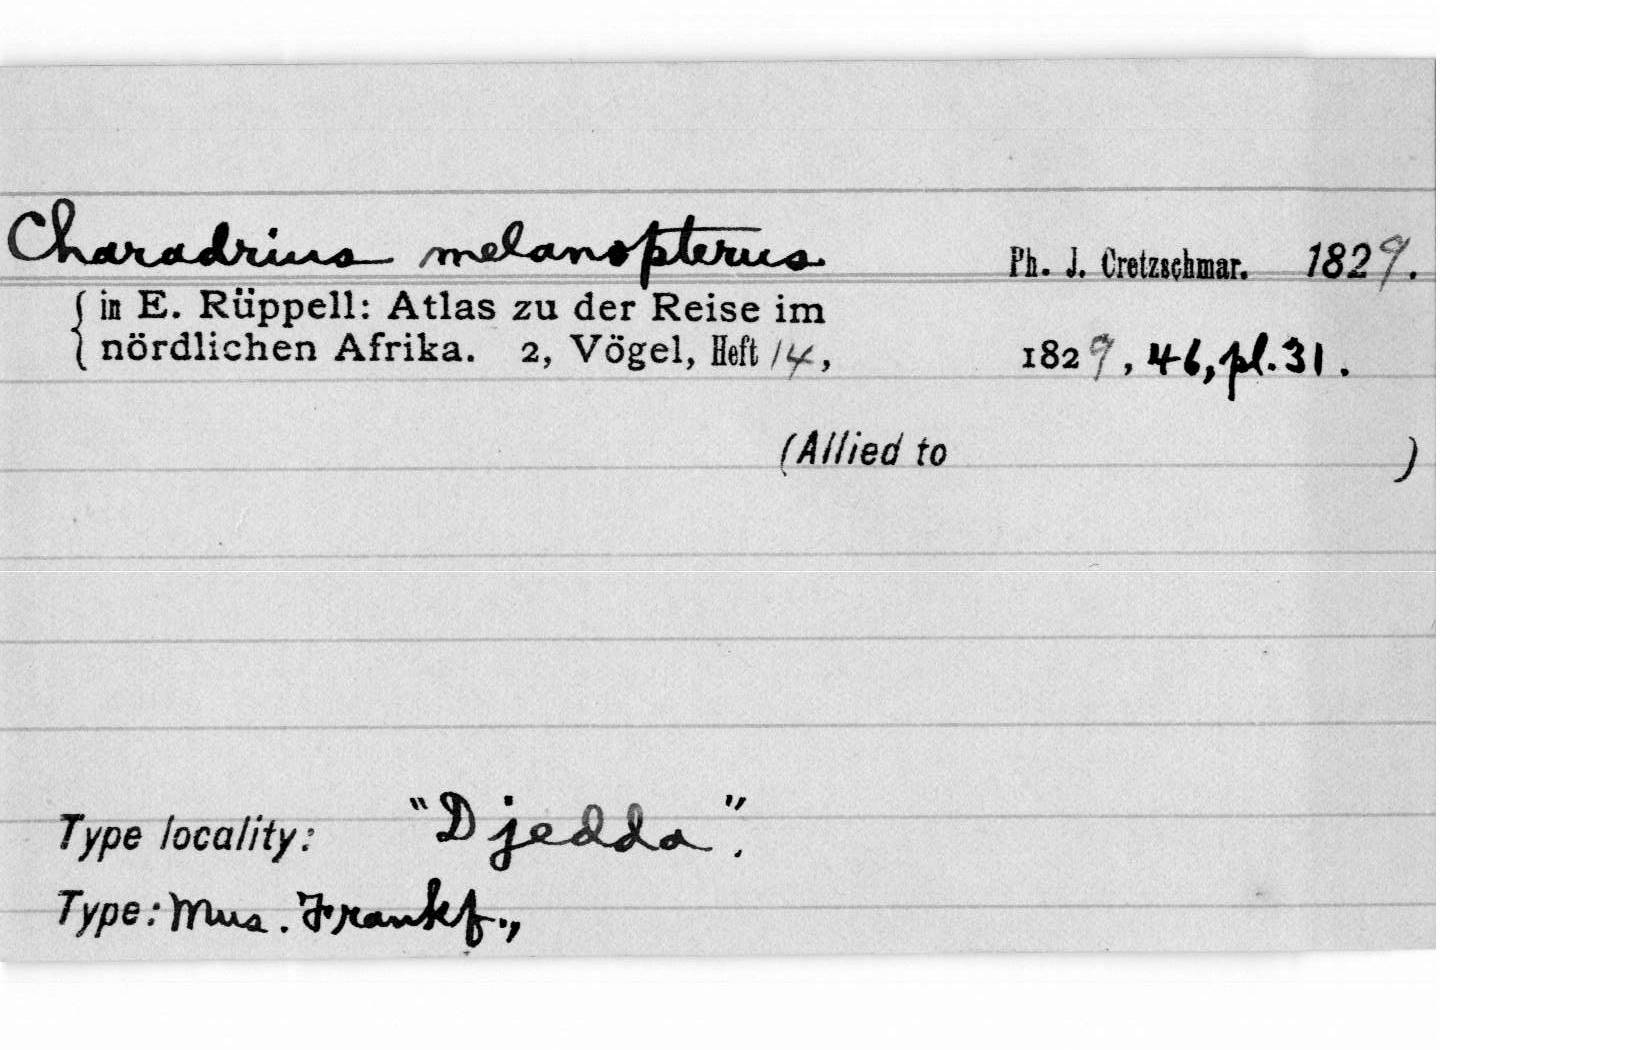 Charadrius melanopterus Ph. J. Cretzschmar. 1829.
{ in E. Rüppell: Atlas zu der Reise im
nördlichen Afrika. 2, Vögel, Heft 14, 1829, 46, pl. 31.
(Allied to )
Type locality: "Djedda".
Type: Mus. Frankf.,